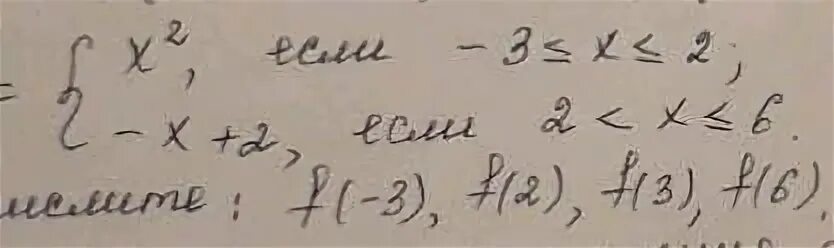 = { x², если -3 ≤ x ≤ 2;
-x+2, если 2 < x ≤ 6.
f(-3), f(2), f(3), f(6).